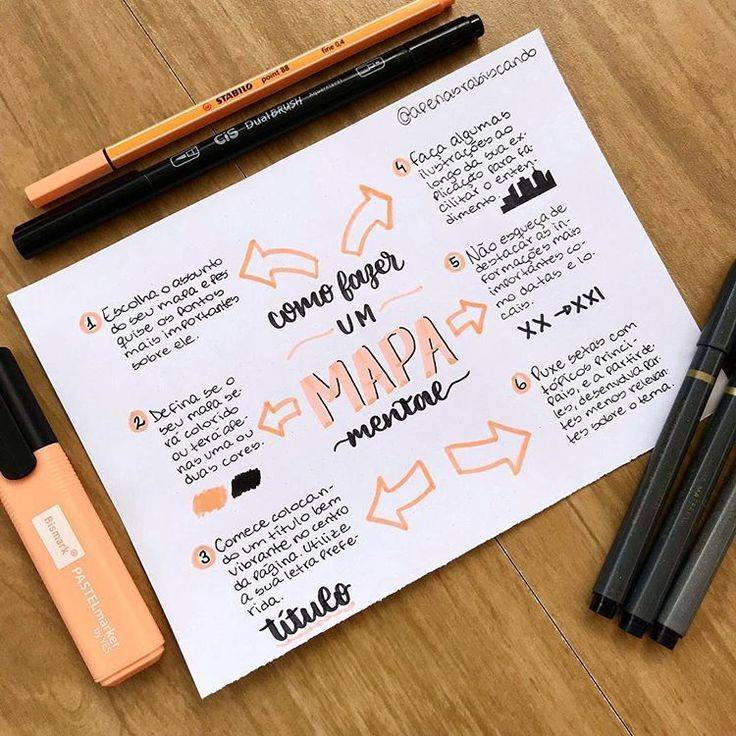 STABILO point 88 fine 0.4
CiS Dual BRUSH Aquarelável
@apenasrabiscando
como fazer
UM
MAPA
mental
1 Escolha o assunto
do seu mapa e pes
quise os pontos
mais importantes
sobre ele.
2 Defina se o
seu mapa se-
rá colorido
ou terá ape-
nas uma ou
duas cores.
3 Comece colocan-
do um título bem
vibrante no centro
da página. Utilize
a sua letra prefe-
rida.
título
4 Faça algumas
ilustrações ao
longo da sua ex-
plicação para fa
cilitar o enten-
dimento.
5 Não esqueça de
destacar as in-
formações mais
importantes co-
mo datas e lo-
cais.
XX → XXI
6 Puxe setas com
tópicos princi-
pais, e a partir de-
les, desenvolva par
tes menos relevan-
tes sobre o tema.
Bismark®
PASTELmarker
by YES